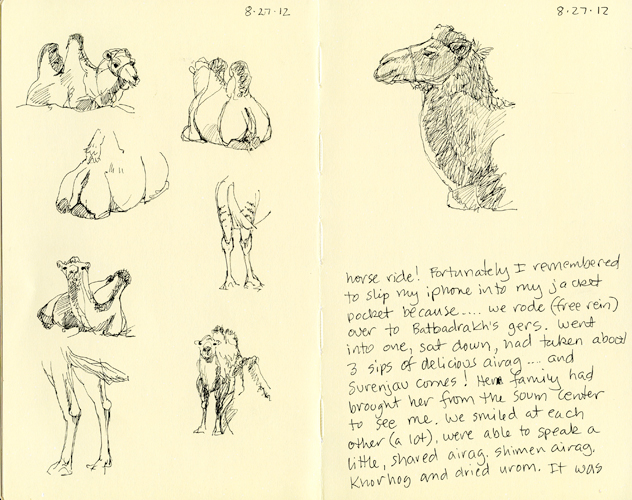 8·27·12
8·27·12
horse ride! Fortunately I remembered
to slip my iphone into my jacket
pocket because..... we rode (free rein)
over to Batbadrakh's gers. Went
into one, sat down, had taken about
3 sips of delicious airag .... and
Surenjau comes! Her family had
brought her from the soum center
to see me. We smiled at each
other (a lot), were able to speak a
little, shared airag. shimen airag.
Khorhog and dried urom. It was